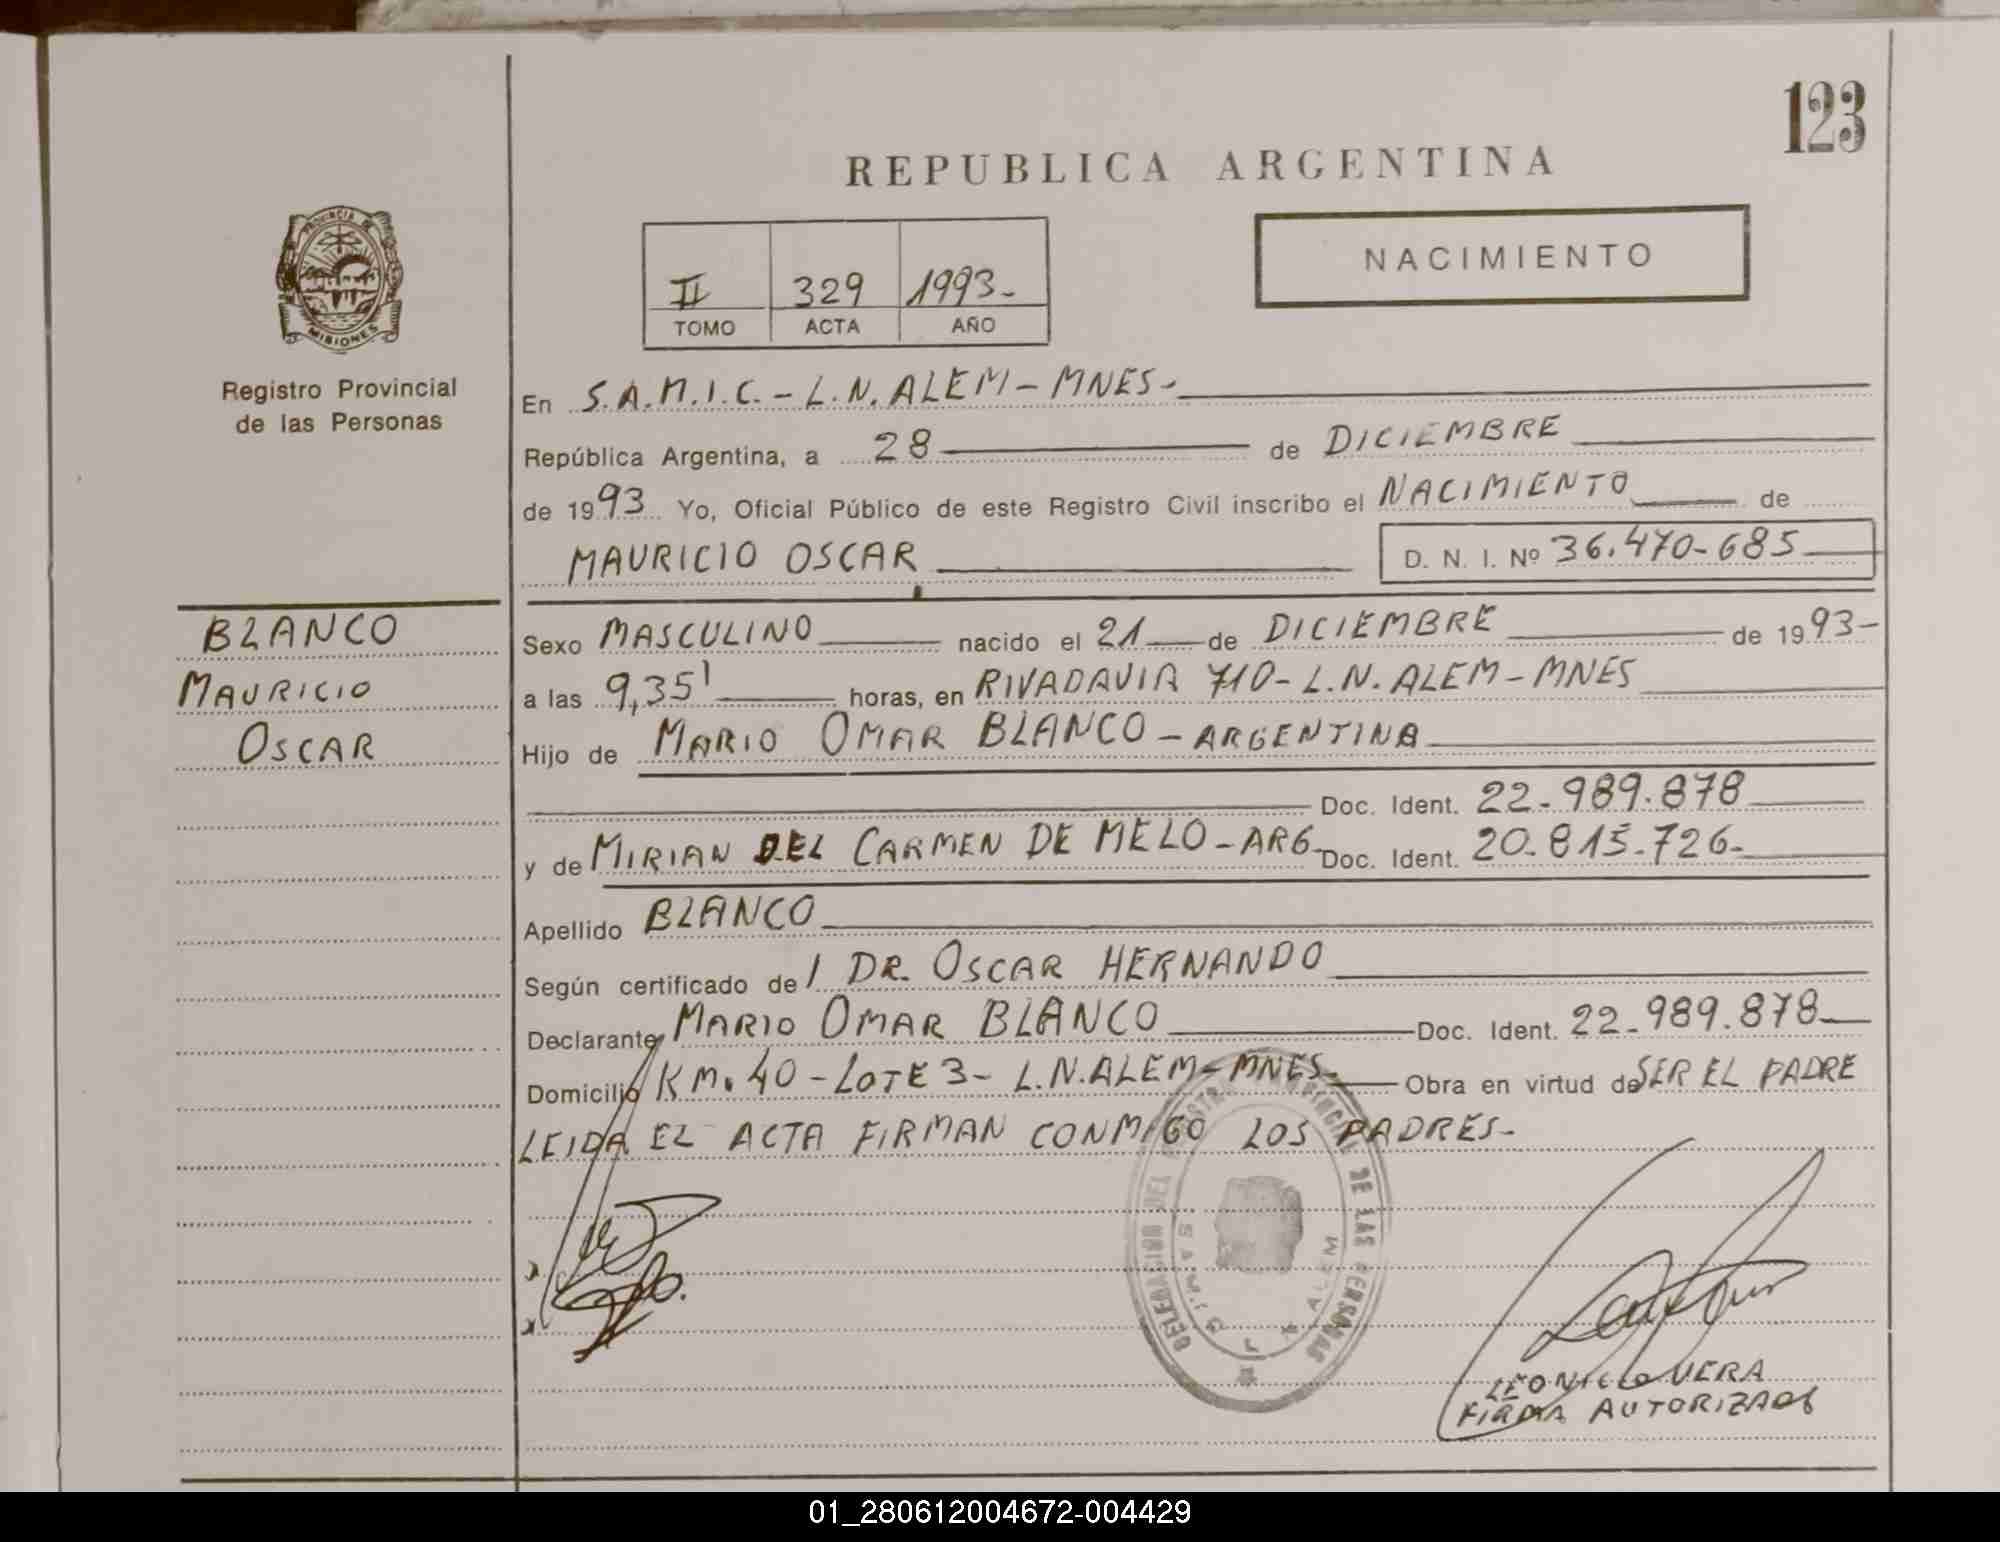 123
REPUBLICA ARGENTINA
NACIMIENTO
II 329 1993-
TOMO ACTA AÑO
PROVINCIA DE
MISIONES
Registro Provincial
de las Personas
En S.A.M.I.C. - L.N. ALEM - MNES-
República Argentina, a 28 de DICIEMBRE
de 1993 Yo, Oficial Público de este Registro Civil inscribo el NACIMIENTO de
MAURICIO OSCAR D. N. I. Nº 36.470-685
BLANCO
MAURICIO
OSCAR
Sexo MASCULINO nacido el 21 de DICIEMBRE de 1993-
a las 9,35' horas, en RIVADAVIA 710- L.N. ALEM - MNES
Hijo de MARIO OMAR BLANCO - ARGENTINA
Doc. Ident. 22-989.878
y de MIRIAN DEL CARMEN DE MELO - ARG- Doc. Ident. 20.815-726-
Apellido BLANCO
Según certificado de / DR. OSCAR HERNANDO
Declarante MARIO OMAR BLANCO Doc. Ident. 22-989.878
Domicilio KM. 40 - LOTE 3 - L.N. ALEM - MNES- Obra en virtud de SER EL PADRE
LEIDA EL ACTA FIRMAN CONMIGO LOS PADRES-
DELEGACION DEL REGISTRO PROVINCIAL DE LAS PERSONAS
ALEM
VERA
FIRMA AUTORIZADA
01_280612004672-004429